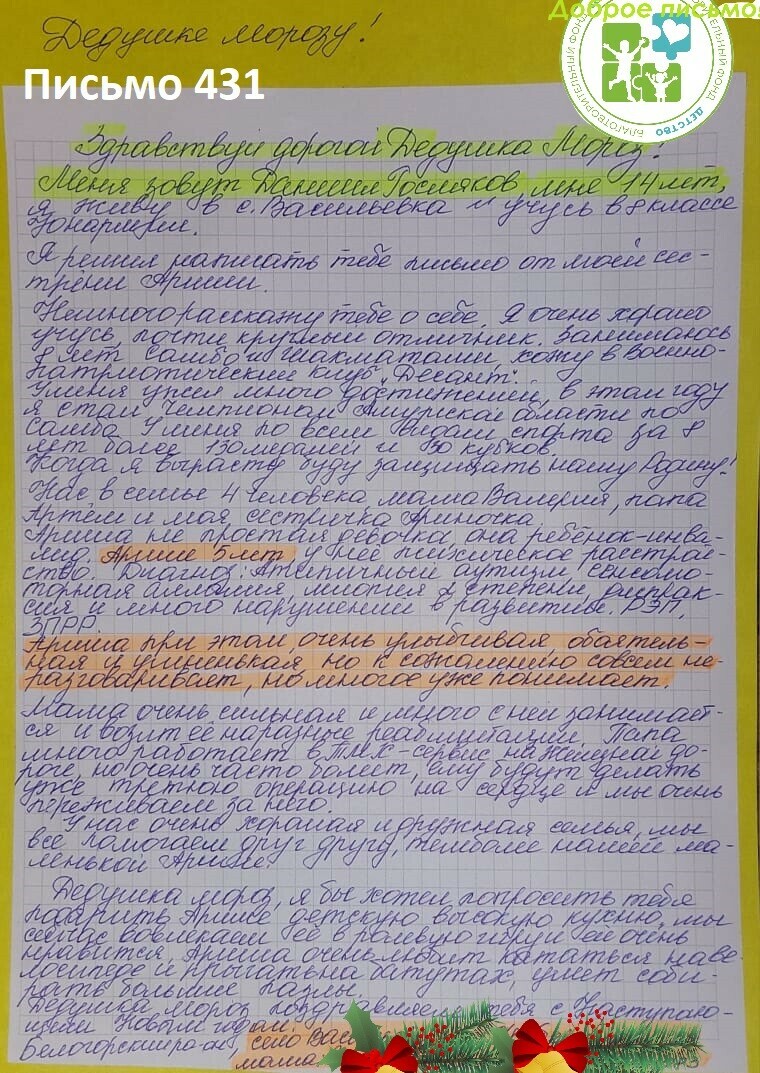 Доброе письмо
Дедушке Морозу!
Письмо 431
БЛАГОТВОРИТЕЛЬНЫЙ ФОНД ДЕТСТВО
Здравствуй дорогой Дедушка Мороз!
Меня зовут Даниил Росляков, мне 14 лет,
я живу в с. Васильевка и учусь в 8 классе
Юнармии.
Я решил написать тебе письмо от моей сес-
трёни Ариши.
Немного расскажу тебе о себе. Я очень хорошо
учусь, почти круглый отличник. Занимаюсь
8 лет самбо и шахматами, хожу в Военно-
патриотический клуб "Десант".
У меня уже много достижений, в этом году
я стал Чемпионом Амурской области по
Самбо. У меня по всем видам спорта за 8
лет более 130 медалей и 30 кубков.
Когда я вырасту буду защищать нашу Родину!
Нас в семье 4 человека мама Валерия, папа
Артём и моя сестричка Ариночка.
Ариша не простая девочка, она ребёнок-инва-
лид. Арише 5 лет, у неё психическое расстрой-
ство. Диагноз: Атипичный аутизм сенсомо-
торная алалия, миопия степени, диспрак-
сия и много нарушений в развитие. РЭП,
ЗПРР
Ариша при этом очень улыбчивая, обаятель-
ная и умненькая, но к сожалению совсем не
разговаривает, но многое уже понимает.
Мама очень сильная и много с ней занимает-
ся и возит её на разные реабилитации. Папа
много работает в ТМХ-сервис на Желез­ной до-
роге, но очень часто болеет, ему будут делать
уже третью операцию на сердце и мы очень
переживаем за него.
У нас очень хорошая и дружная семья, мы
все помогаем друг другу, тем более нашей ма-
ленькой Арише.
Дедушка мороз, я бы хотел попросить тебя
подарить Арише детскую высокую кухню, мы
сейчас вовлекаем её в ролевую игру и ей очень
нравится. Ариша очень любит кататься на ве-
лосипеде и прыгать на батутах, умеет соби-
рать большие пазлы.
Дедушка мороз поздравляем тебя с Наступаю-
щим Новым годом.
Белогорский ра-он, село Вас
мама